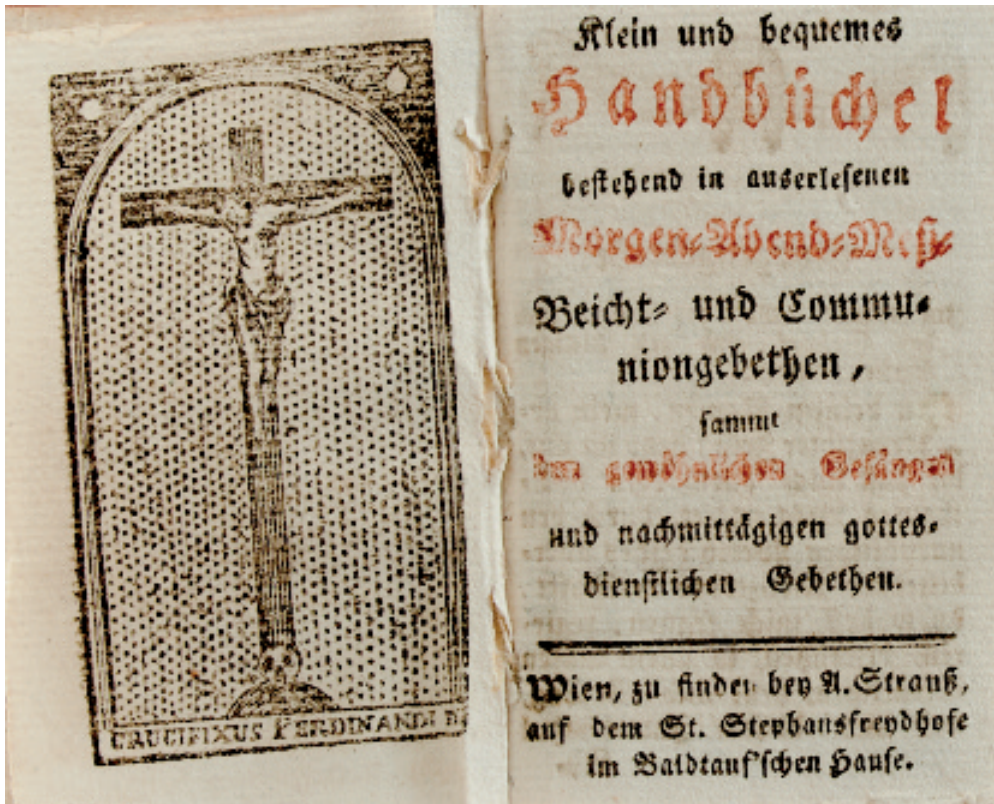 CRUCIFIXUS FERDINANDI II
Klein und bequemes
Handbüchel
bestehend in auserlesenen
Morgen-Abend-Meß-
Beicht- und Commu-
niongebethen,
sammt
den gewöhnlichen Gesängen
und nachmittägigen gottes-
dienstlichen Gebethen.
Wien, zu finden bey A. Strauß,
auf dem St. Stephansfreydhofe
im Baldtauf'schen Hause.